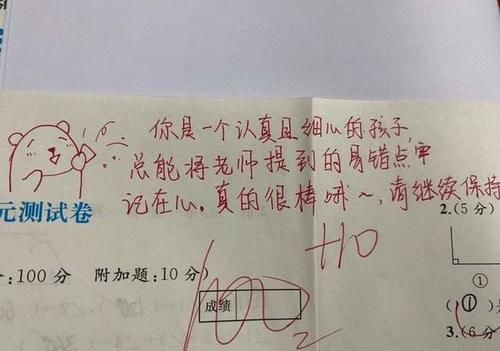 你是一个认真且细心的孩子,
总能将老师提到的易错点牢
记在心。真的很棒哦～,请继续保持
元测试卷
2.(5分)
+10
:100分 附加题:10分)
成绩
100
①
(①)
3.(6分